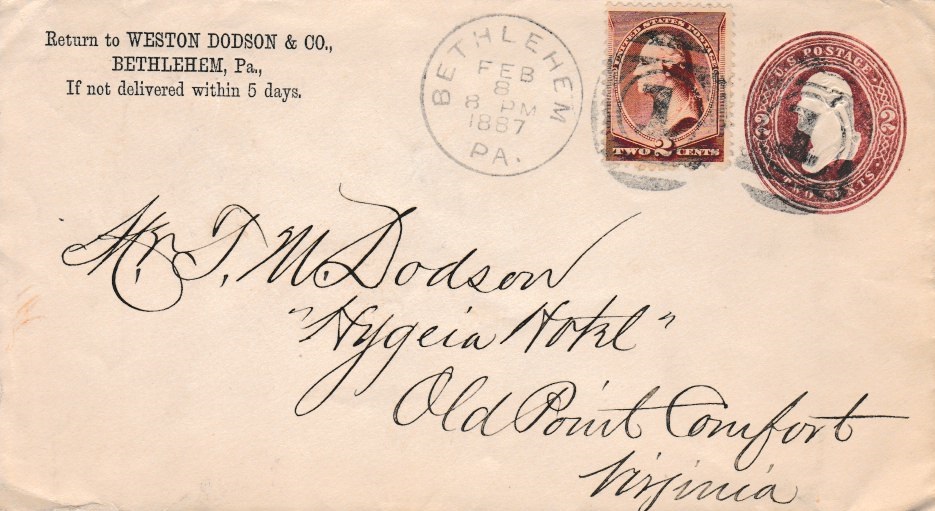 Return to WESTON DODSON & CO.,
BETHLEHEM, Pa.,
If not delivered within 5 days.
BETHLEHEM
FEB
8
8 PM
1887
PA.
UNITED STATES POSTAGE
TWO 2 CENTS
1
U.S. POSTAGE
2 2
TWO CENTS
1
Mr. T. M. Dodson
"Hygeia Hotel"
Old Point Comfort
Virginia